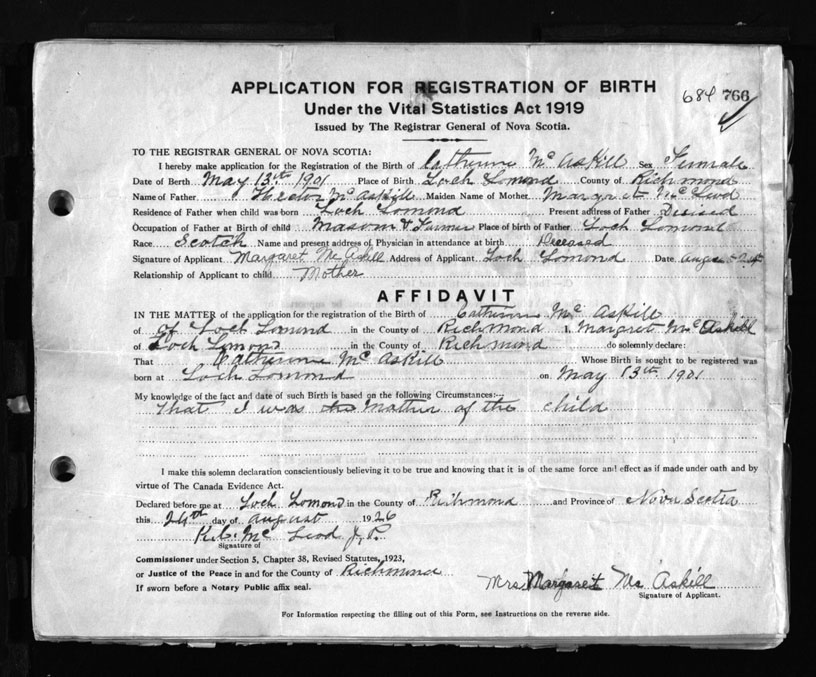 APPLICATION FOR REGISTRATION OF BIRTH
684 766
Under the Vital Statistics Act 1919
Issued by The Registrar General of Nova Scotia.
TO THE REGISTRAR GENERAL OF NOVA SCOTIA:
I hereby make application for the Registration of the Birth of Catherine Mc Askill Sex Female
Date of Birth May 13th 1901 Place of Birth Loch Lomond County of Richmond
Name of Father Hector Mc Askill Maiden Name of Mother Margret Mc Leod
Residence of Father when child was born Loch Lomond Present address of Father
Occupation of Father at Birth of child Mason & Farmer Place of birth of Father Loch Lomond
Race Scotch Name and present address of Physician in attendance at birth Deceased
Signature of Applicant Margaret Mc Askill Address of Applicant Loch Lomond Date
Relationship of Applicant to child Mother
AFFIDAVIT
IN THE MATTER of the application for the registration of the Birth of Catherine Mc Askill
of of Loch Lomond in the County of Richmond I, Margret Mc Askill
of Loch Lomond in the County of Richmond do solemnly declare:
That Catherine Mc Askill Whose Birth is sought to be registered was
born at Loch Lomond on May 13th 1901
My knowledge of the fact and date of such Birth is based on the following Circumstances:—
That I was the Mother of the child
I make this solemn declaration conscientiously believing it to be true and knowing that it is of the same force and effect as if made under oath and by
virtue of The Canada Evidence Act.
Declared before me at Loch Lomond in the County of Richmond and Province of Nova Scotia
this 24th day of August 1926
Mc Leod J. P.
Signature of
Commissioner under Section 5, Chapter 38, Revised Statutes, 1923,
or Justice of the Peace in and for the County of Richmond
If sworn before a Notary Public affix seal.
Mrs Margaret Mc Askill
Signature of Applicant.
For Information respecting the filling out of this Form, see Instructions on the reverse side.